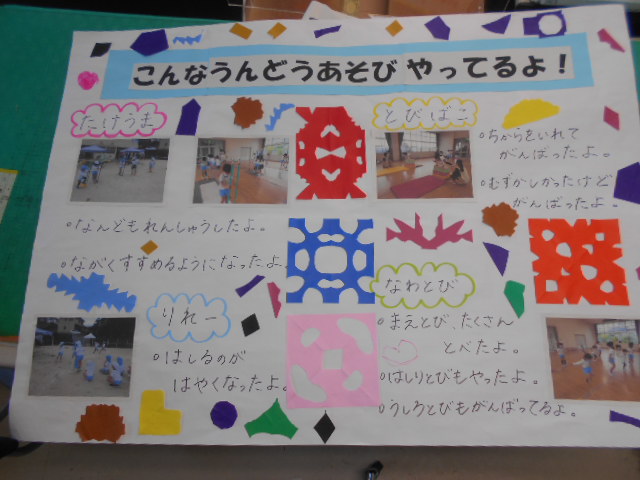 こんなうんどうあそび やってるよ！
たけうま
。なんどもれんしゅうしたよ。
。ながくすすめるように、なったよ。
とびばこ
。ちからをいれて
がんばったよ。
。むずかしかったけど
がんばったよ。
りれー
。はしるのが
はやくなったよ。
なわとび
。まえとび、たくさん
とべたよ。
。はしりとびもやったよ。
。うしろとびもがんばってるよ。